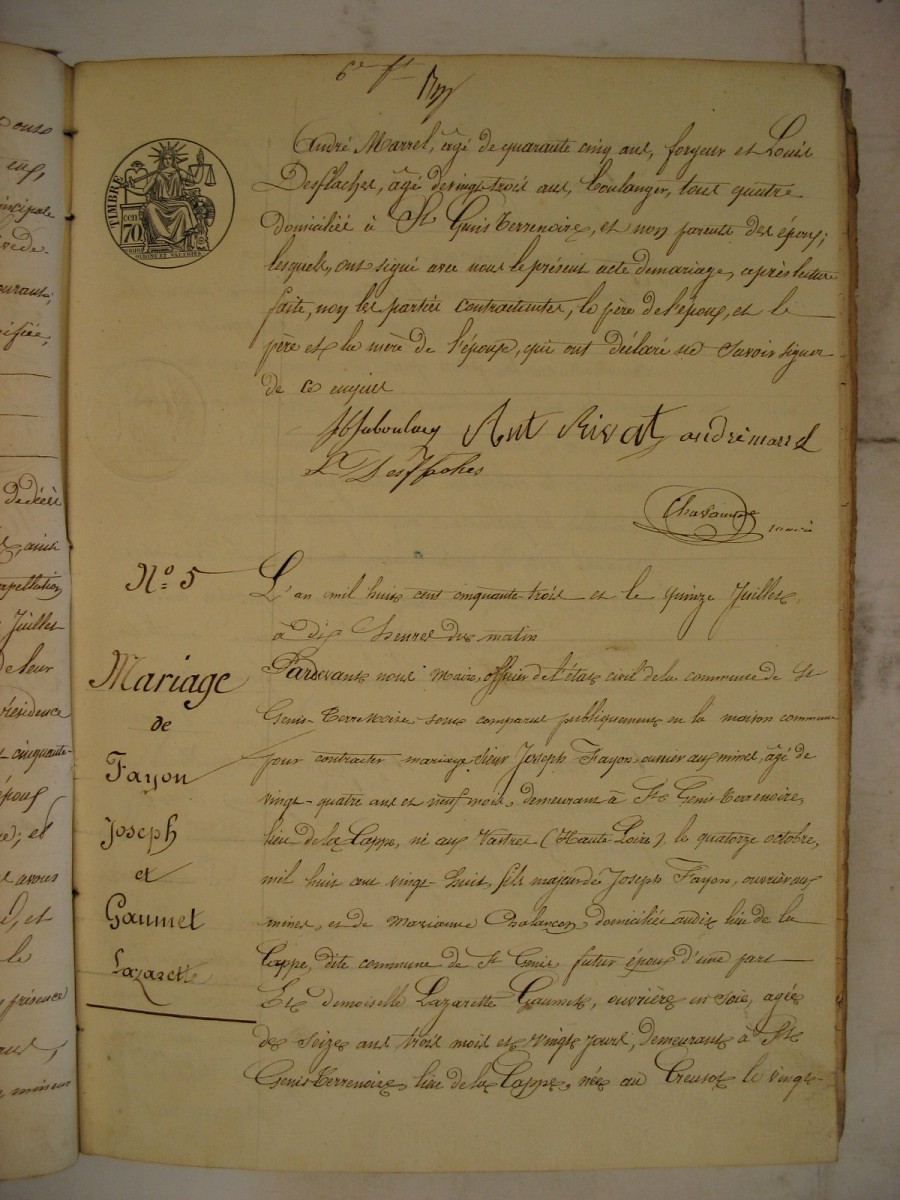 6e ft
TIMBRE
cen
70
André Marrel, âgé de quarante cinq ans, forgeur et Louis
Desflaches, âgé de vingt trois ans, boulanger, tous quatre
domiciliés à St Genis Terrenoire, et non parents des époux;
lesquels, ont signé avec nous le présent acte de mariage, après lecture
faite, non les parties contractantes, le père de l'époux, et le
père et la mère de l'épouse, qui ont déclaré ne savoir signer
de ce enquis
Ant Rivat andré marrel
L Desflaches
Chavanne
N° 5
L'an mil huit cent cinquante-trois et le quinze Juillet,
à dix heures du matin
Mariage
de
Fayon
Joseph
et
Gaumet
Lazarette
Pardevant nous Maire, officier de l'état civil de la commune de St
Genis-Terrenoire sont comparus publiquement en la maison commune
pour contracter mariage sieur Joseph Fayon ouvrier aux mines, âgé de
vingt-quatre ans et neuf mois, demeurant à St Genis-Terrenoire,
lieu de la Cappe, né aux Vastres (Haute-Loire), le quatorze octobre,
mil huit cent vingt-huit, fils majeur de Joseph Fayon, ouvrier aux
mines, et de Marianne Chalancon, domiciliés audit lieu de la
Cappe, dite commune de St Genis, futur époux d'une part
Et demoiselle Lazarette Gaumet, ouvrière en soie, agée
de seize ans trois mois et vingt jours, demeurant à St
Genis-Terrenoire, lieu de la Cappe, née au Creusot le vingt-